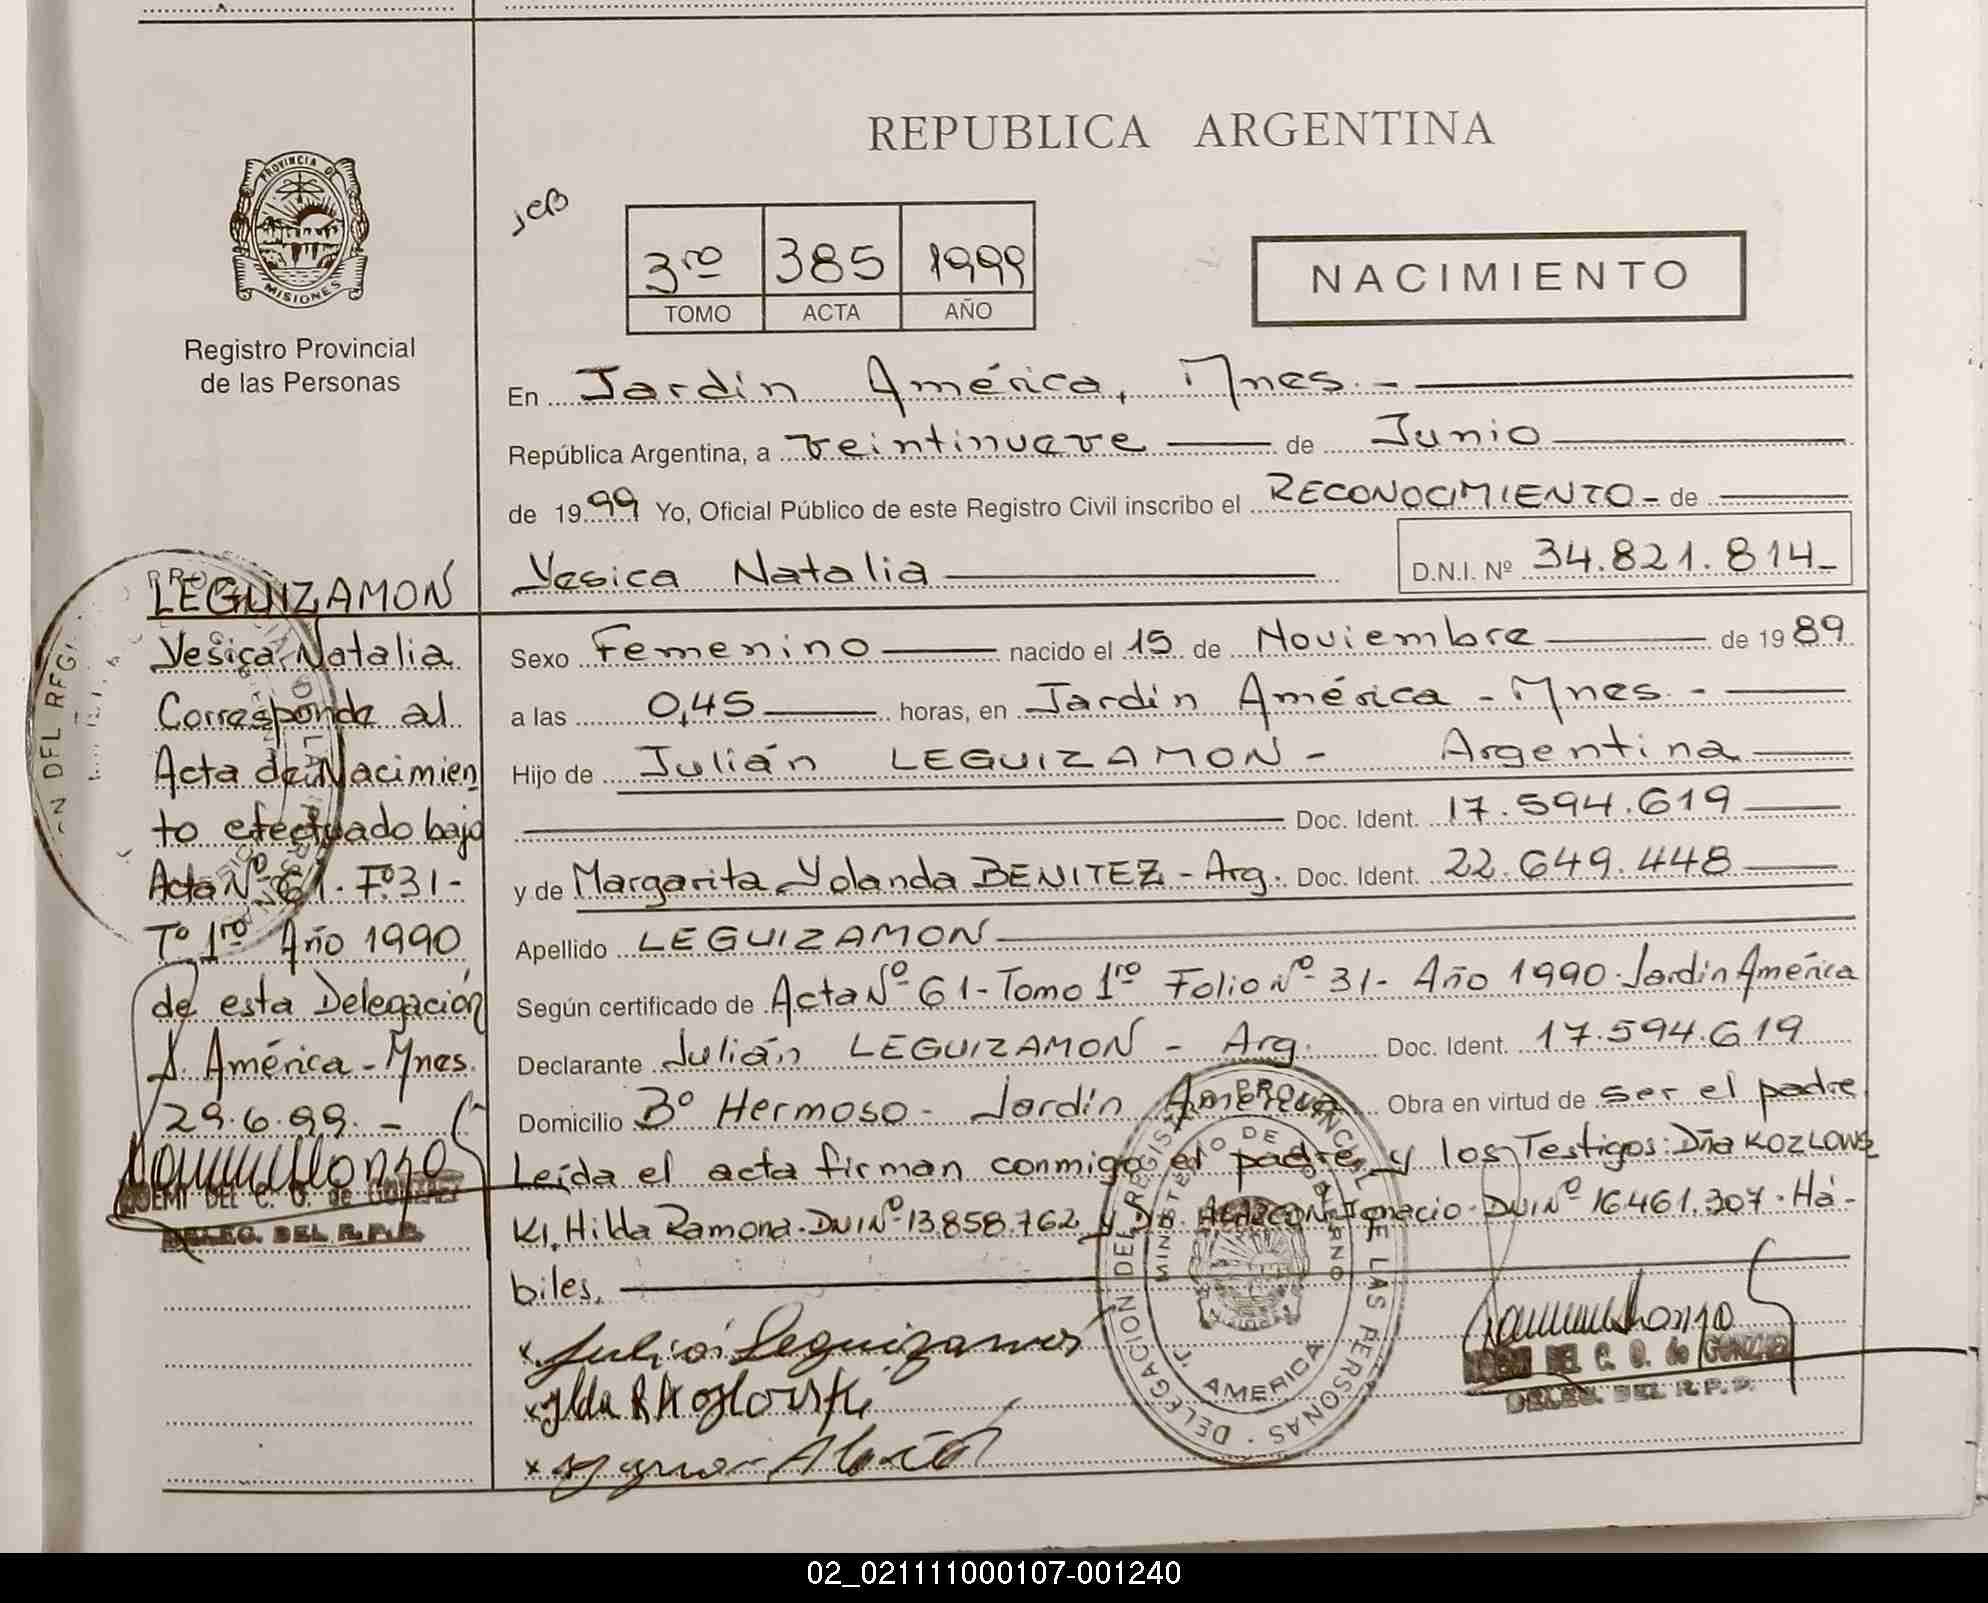 REPUBLICA ARGENTINA
PROVINCIA DE
MISIONES
Registro Provincial
de las Personas
JCB
3ro 385 1999
TOMO ACTA AÑO
NACIMIENTO
En Jardín América, Mnes. -
República Argentina, a veintinueve de Junio
de 1999 Yo, Oficial Público de este Registro Civil inscribo el RECONOCIMIENTO - de
Yesica Natalia D.N.I. Nº 34.821.814-
Sexo Femenino nacido el 15 de Noviembre de 1989
a las 0,45 horas, en Jardín América - Mnes. -
Hijo de Julián LEGUIZAMON - Argentina
Doc. Ident. 17.594.619
y de Margarita Yolanda BENITEZ - Arg. Doc. Ident. 22.649.448
Apellido LEGUIZAMON
Según certificado de Acta Nº 61 - Tomo 1ro Folio Nº 31 - Año 1990 - Jardín América
Declarante Julián LEGUIZAMON - Arg. Doc. Ident. 17.594.619
Domicilio Bº Hermoso - Jardín América Obra en virtud de ser el padre
Leída el acta firman conmigo el padre y los Testigos: Dña KOZLOWS
KI, Hilda Ramona - DNI Nº 13.858.762 y Dn. ALARCON, Ignacio - DNI Nº 16.461.307 - Há-
biles.
LEGUIZAMON
Yesica Natalia
Corresponde al
Acta de Nacimien
to efectuado bajo
Acta Nº 61. Fº 31 -
Tº 1ro Año 1990
de esta Delegación
J. América - Mnes.
29.6.99. -
NOEMI DEL C. G. de GONZALEZ
DELEG. DEL R.P.P.
x Julián Leguizamon
x Ilda R Kozlowski
x Ignacio Alarcón
DELEGACION DEL REGISTRO PROVINCIAL DE LAS PERSONAS
MINISTERIO DE GOBIERNO
J. AMERICA
NOEMI DEL C. G. de GONZALEZ
DELEG. DEL R.P.P.
02_021111000107-001240